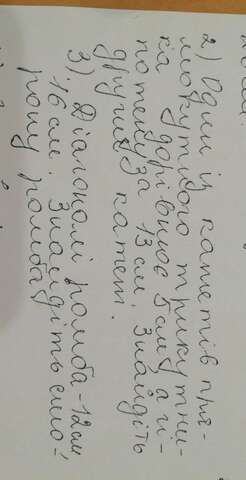 2) Один із катетів пря-
мокутного трикутни-
ка дорівнює 5 см, а гі-
потенуза 13 см. Знайдіть
другий катет.
3) Діагоналі ромба - 12 см
16 см. Знайдіть сто-
рону ромба.